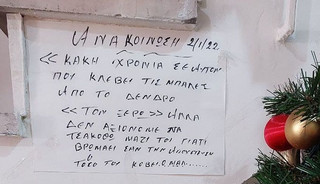 ΑΝΑΚΟΙΝΩΣΗ 2/1/22
<< ΚΑΚΗ ΧΡΟΝΙΑ ΣΕ ΑΥΤΟΝ
ΠΟΥ ΚΛΕΒΕΙ ΤΙΣ ΜΠΑΛΕΣ
ΑΠΟ ΤΟ ΔΕΝΔΡΟ
<< ΤΟΝ ΞΕΡΩ >> ΑΛΛΑ
ΔΕΝ ΑΞΙΟΝΟΜΕ ΝΑ
ΤΣΑΚΟΘΩ ΜΑΖΙ ΤΟΥ ΓΙΑΤΙ
ΒΡΩΜΑΕΙ ΣΑΝ ΤΗΝ
ΤΟΣΟ ΤΟΥ ΚΟΒΕΙ